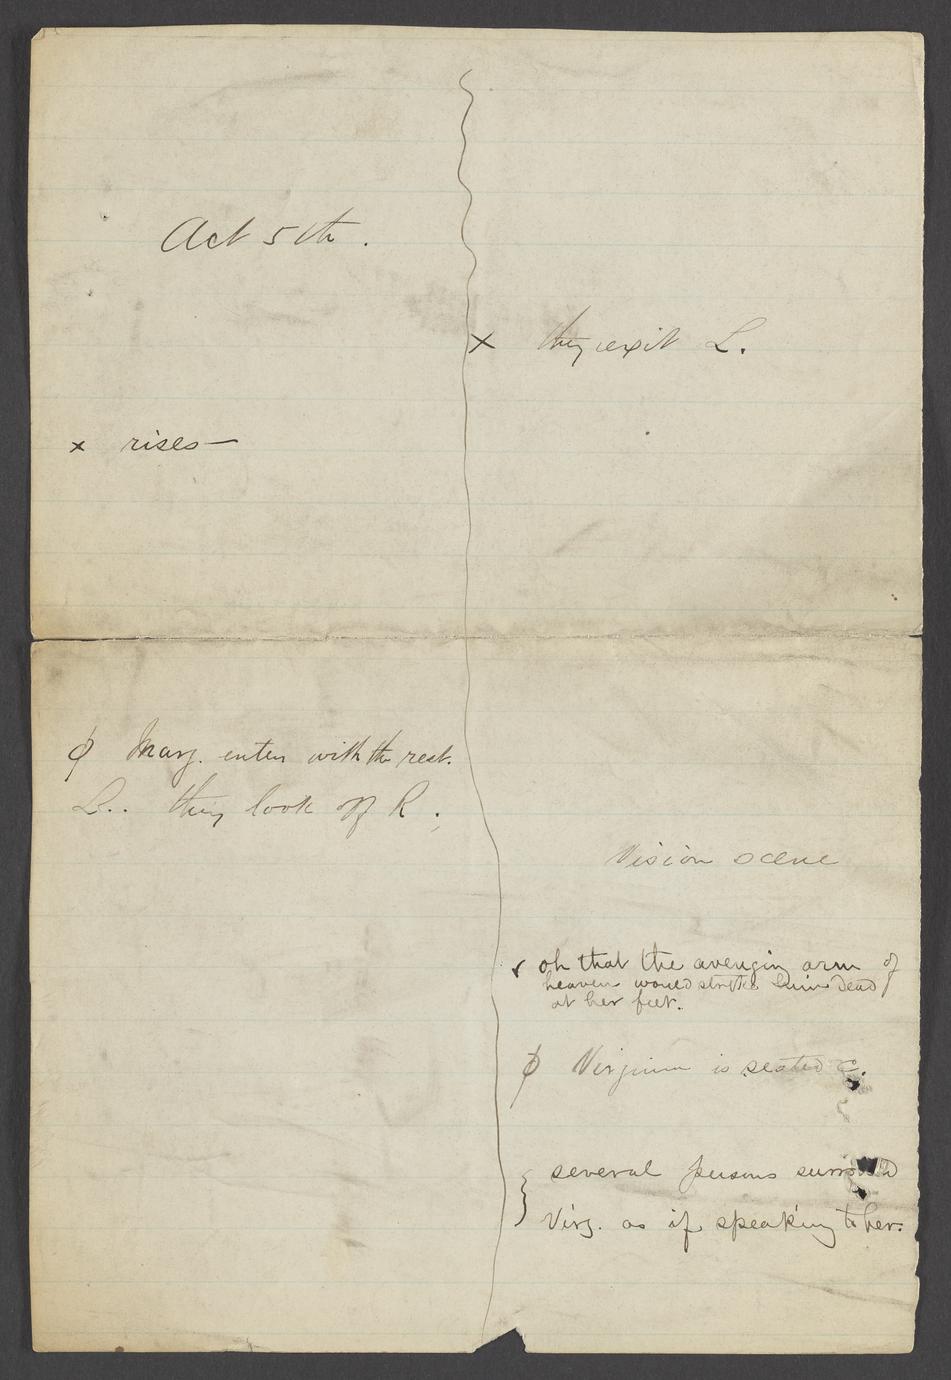 Act 5th.
x rises—
ϕ Marg. enters with the rest.
L.. they look off R.
x they exit L.
Vision scene
✓ oh that the avenging arm of
heaven would strike him dead
at her feet.
ϕ Virginia is seated C.
several persons surround
Virg. as if speaking to her.